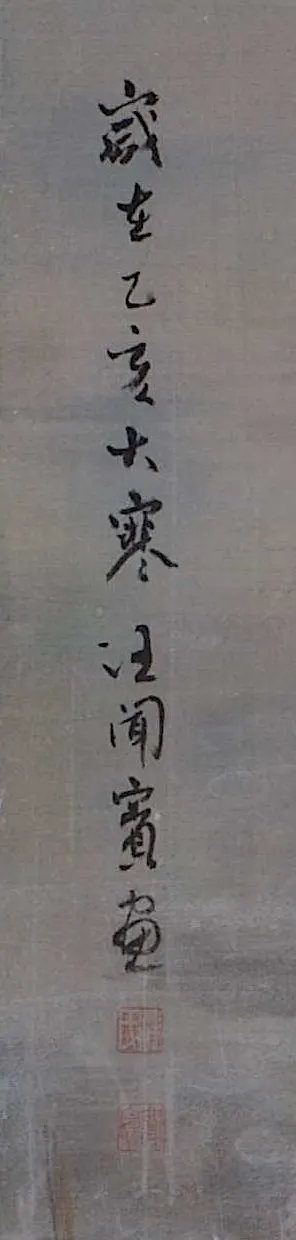 歲在乙亥大寒汪聞賓畫